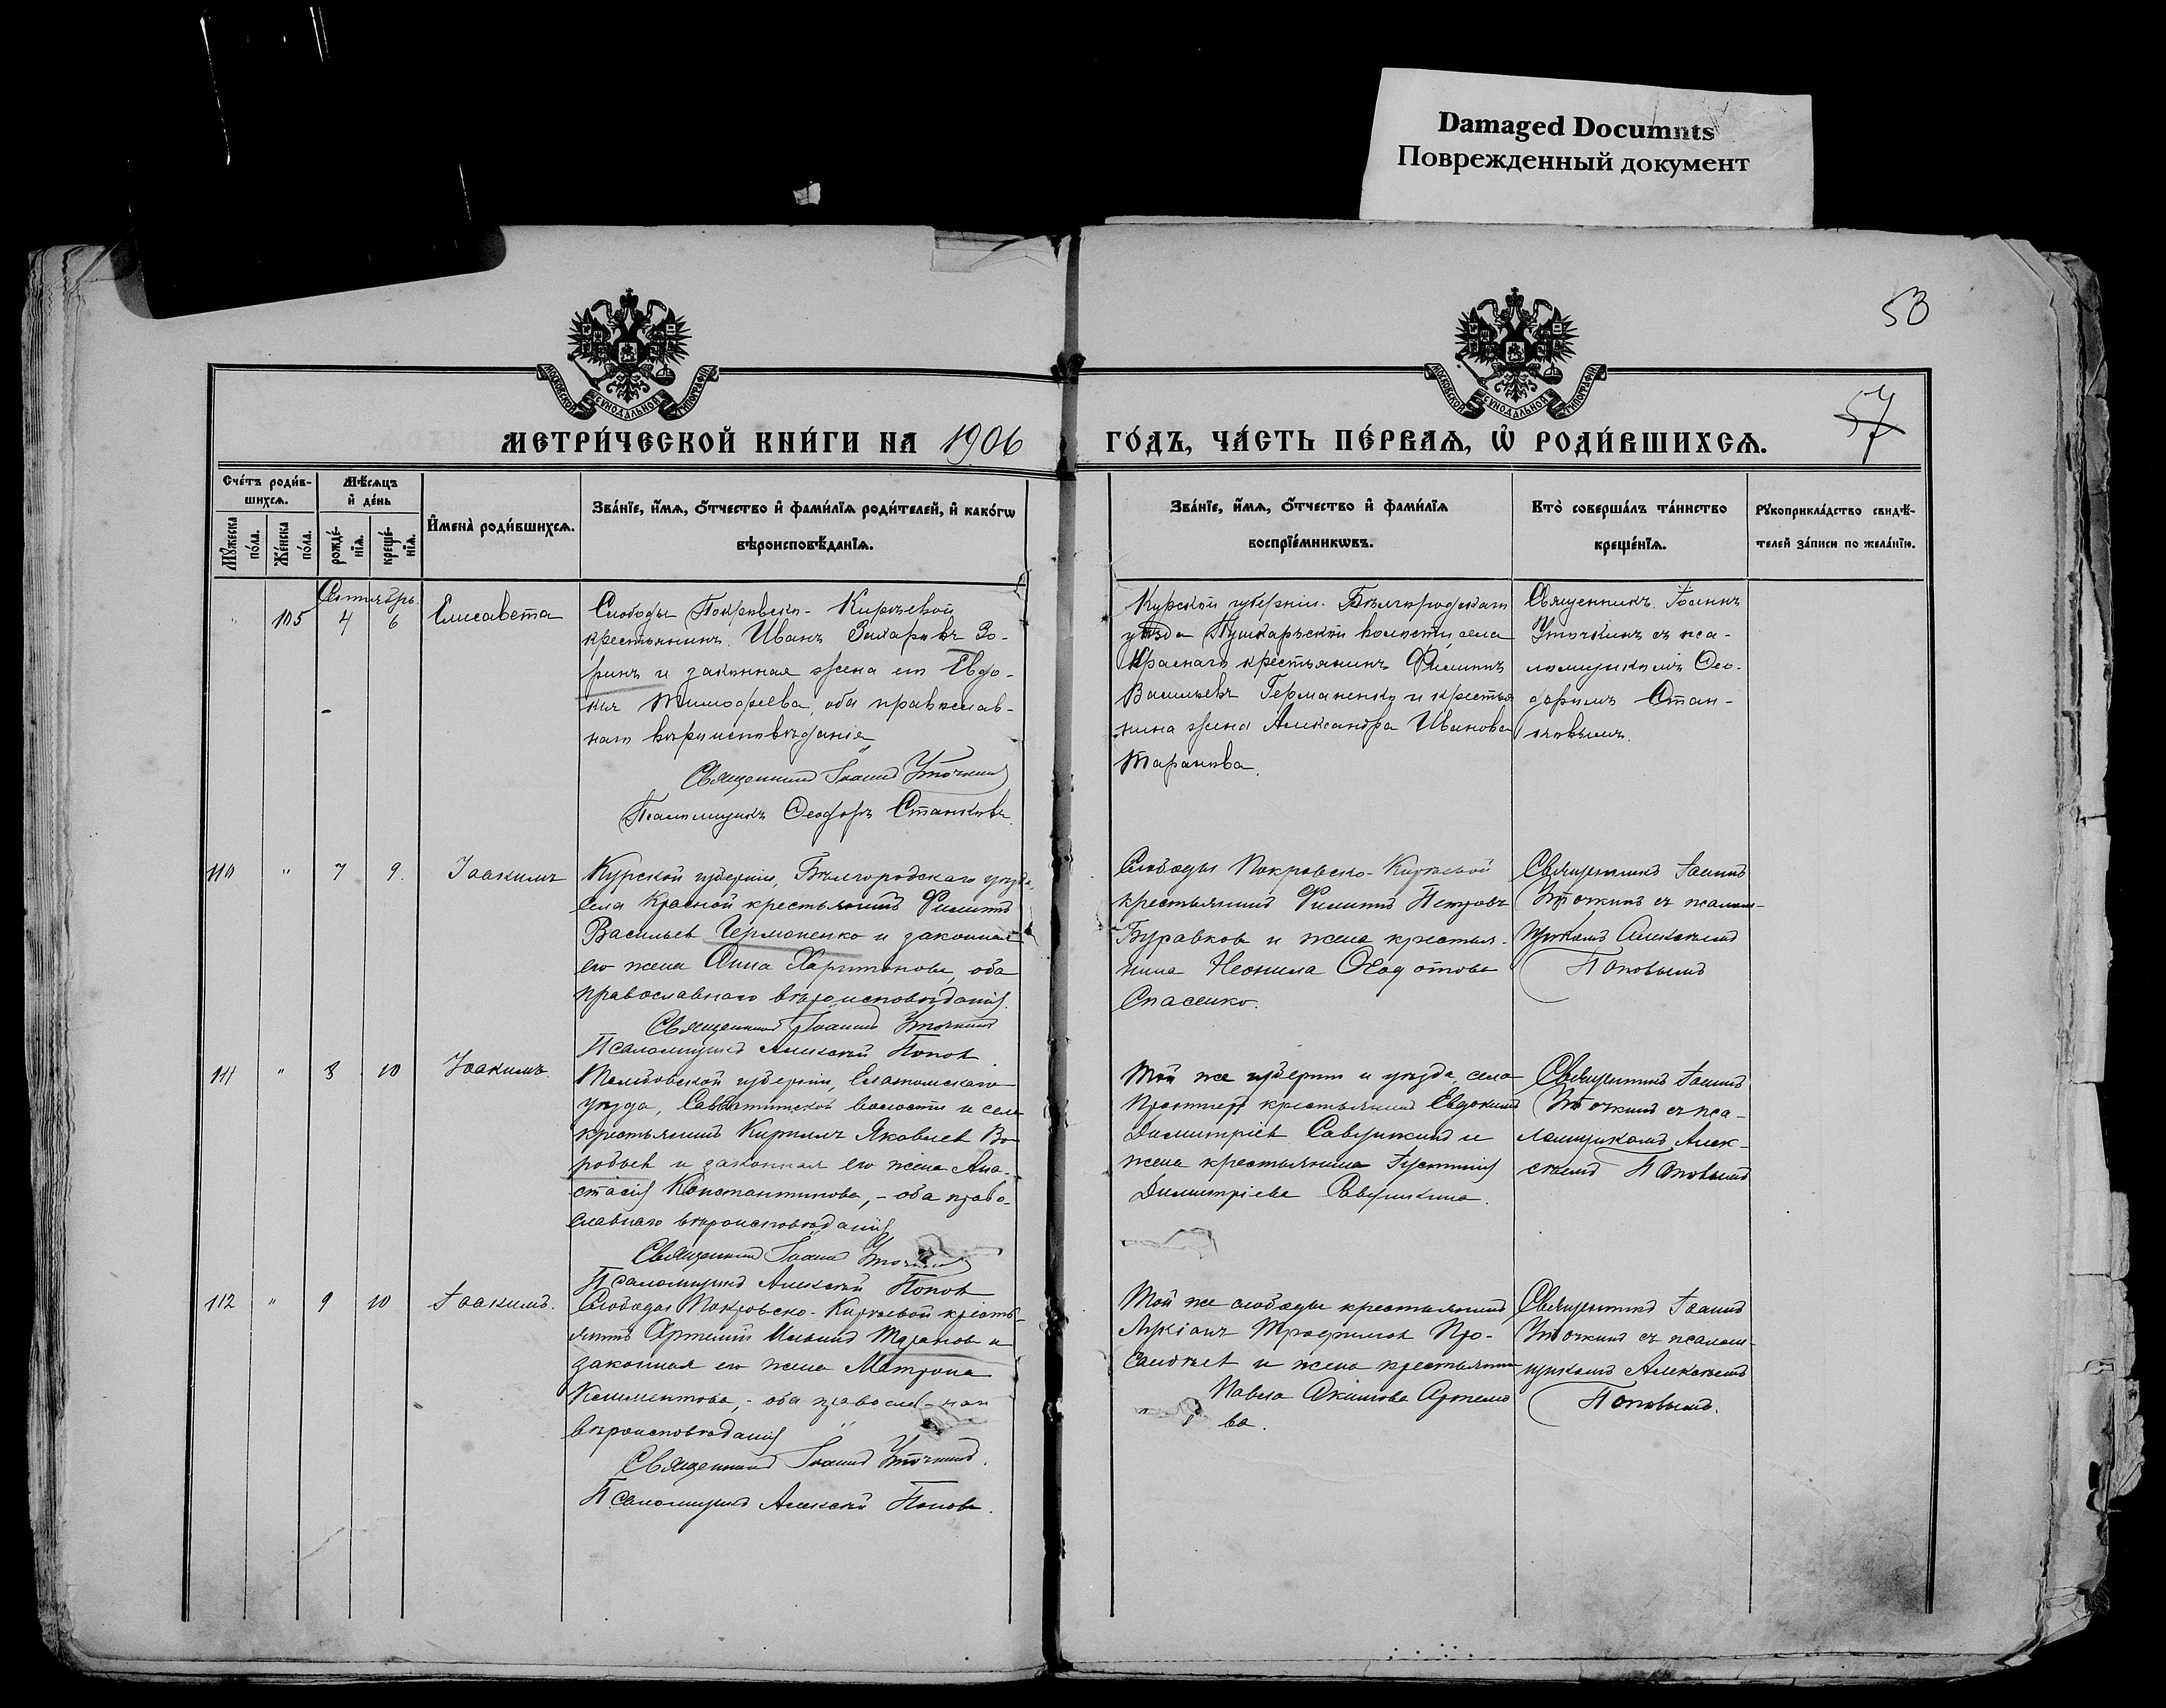 Damaged Documnts
Поврежденный документ
53
57
МОСКОВСКОЙ СѴНОДАЛЬНОЙ ТИПОГРАФІИ
МОСКОВСКОЙ СѴНОДАЛЬНОЙ ТИПОГРАФІИ
МЕТРИ́ЧЕСКОЙ КНИ́ГИ НА 1906
ГО́ДЪ, ЧА́СТЬ ПЕ́РВАѦ, Ѡ҆ РОДИ́ВШИХСѦ.
Сче́тъ роди́в-
шихсѧ.
Мꙋ́жеска по́ла.
Же́нска по́ла.
Мѣ́сѧцъ
и҆ де́нь
рожде́-
нїѧ.
креще́-
нїѧ.
И҆мена̀ роди́вшихсѧ.
Зва́нїе, и҆́мѧ, ѻ҆́тчество и҆ фами́лїѧ роди́телей, и҆ како́гѡ
вѣроисповѣ́данїѧ.
Зва́нїе, и҆́мѧ, ѻ҆́тчество и҆ фами́лїѧ
воспрїе́мникѡвъ.
Кто̀ соверша́лъ та́инство
креще́нїѧ.
Рꙋкоприкла́дство свидѣ́-
телей за́писи по жела́нїю.
Сентябрь
" 105 4 6 Елисавета
Слободы Покровско-Киреевой
крестьянинъ Иванъ Захаровъ Зо-
ринъ и законная жена его Евдо-
кія Тимофеева, оба православ-
наго вѣроисповѣданія
Священникъ Іоаннъ Уточкинъ
Псаломщикъ Ѳеодоръ Станковъ.
Курской губерніи Бѣлгородскаго
уѣзда Пушкарской волости села
Краснаго крестьянинъ Филиппъ
Васильевъ Германенко и крестья
нина жена Александра Иванова
Таранова.
Священникъ Іоаннъ
Уточкинъ съ пса-
ломщикомъ Ѳео-
доромъ Стан-
ковымъ.
110 " 7 9. Іоакимъ
Курской губерніи, Бѣлгородскаго уѣзда,
села Красной крестьянинъ Филиппъ
Васильевъ Германенко и законная
его жена Анна Харитонова, оба
православнаго вѣроисповѣданія.
Священникъ Іоаннъ Уточкинъ
Псаломщикъ Алексѣй Попов
Слободы Покровско-Киреевой
крестьянинъ Филиппъ Петровъ
Буравков и жена крестья-
нина Неонила Ѳедотова
Спасенко.
Священникъ Іоаннъ
Уточкинъ съ псалом-
щикомъ Алексѣемъ
Поповымъ
111 " 8 10 Іоакимъ
Тамбовской губерніи, Елатомскаго
уѣзда, волости и села
крестьянинъ Кириллъ Яковлев Во-
робьев и законная его жена Ана-
стасія Константинова, - оба право-
славнаго вѣроисповѣданія
Священникъ Іоаннъ Уточкинъ
Псаломщикъ Алексѣй Попов
Той же губерніи и уѣзда, села
крестьянинъ Евдокимъ
Димитріев и
жена крестьянина
Димитріева
Священникъ Іоаннъ
Уточкинъ съ пса-
ломщикомъ Алек-
сѣемъ Поповымъ
112 " 9 10 Іоакимъ.
Слободы Покровско-Киреевой кресть-
янинъ Артемій Ильинъ Таранов и
законная его жена Матрона
Климентова, - оба православнаго
вѣроисповѣданія
Священникъ Іоаннъ Уточкинъ.
Псаломщикъ Алексѣй Поповъ.
Той же слободы крестьянинъ
Лукіанъ Трофимов
и жена крестьянина
Павла Акимова
ва.
Священникъ Іоаннъ
Уточкинъ съ псалом-
щикомъ Алексѣемъ
Поповымъ.